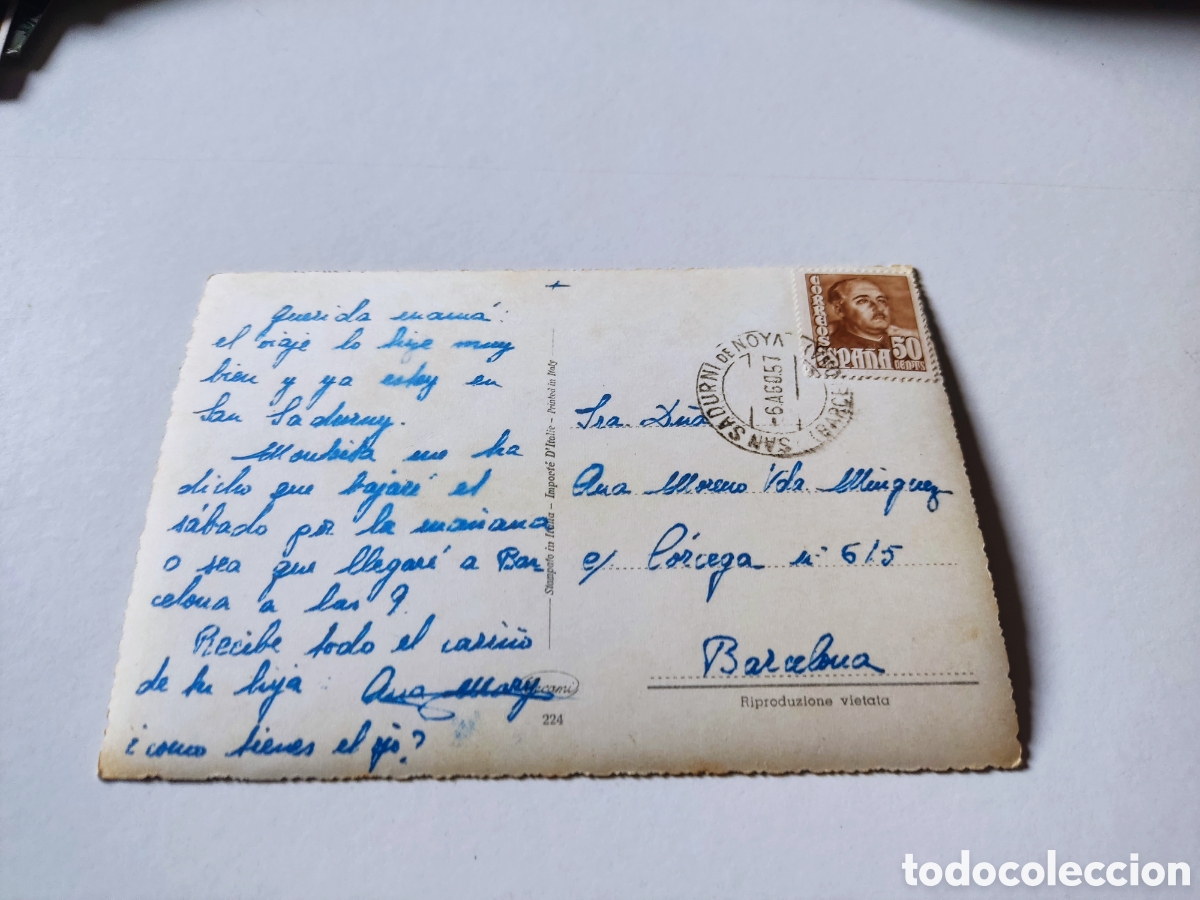 Querida mamá:
el viaje lo hize muy
bien y ya estoy en
San Sadurny.
Montsita me ha
dicho que bajaré el
sábado por la mañana
o sea que llegaré a Bar
celona a las 9.
Recibe todo el cariño
de tu hija Ana Mary
¿como tienes el ojo?
Stampato in Italia - Importé D'Italie - Printed in Italy
224
CORREOS
ESPAÑA 50
CENTS
SAN SADURNI DE NOYA
-6 AGO.57
Sra Dña
Ana Moreno Vda Minguez
c/ Córcega nº 615
Barcelona
Riproduzione vietata
todocoleccion